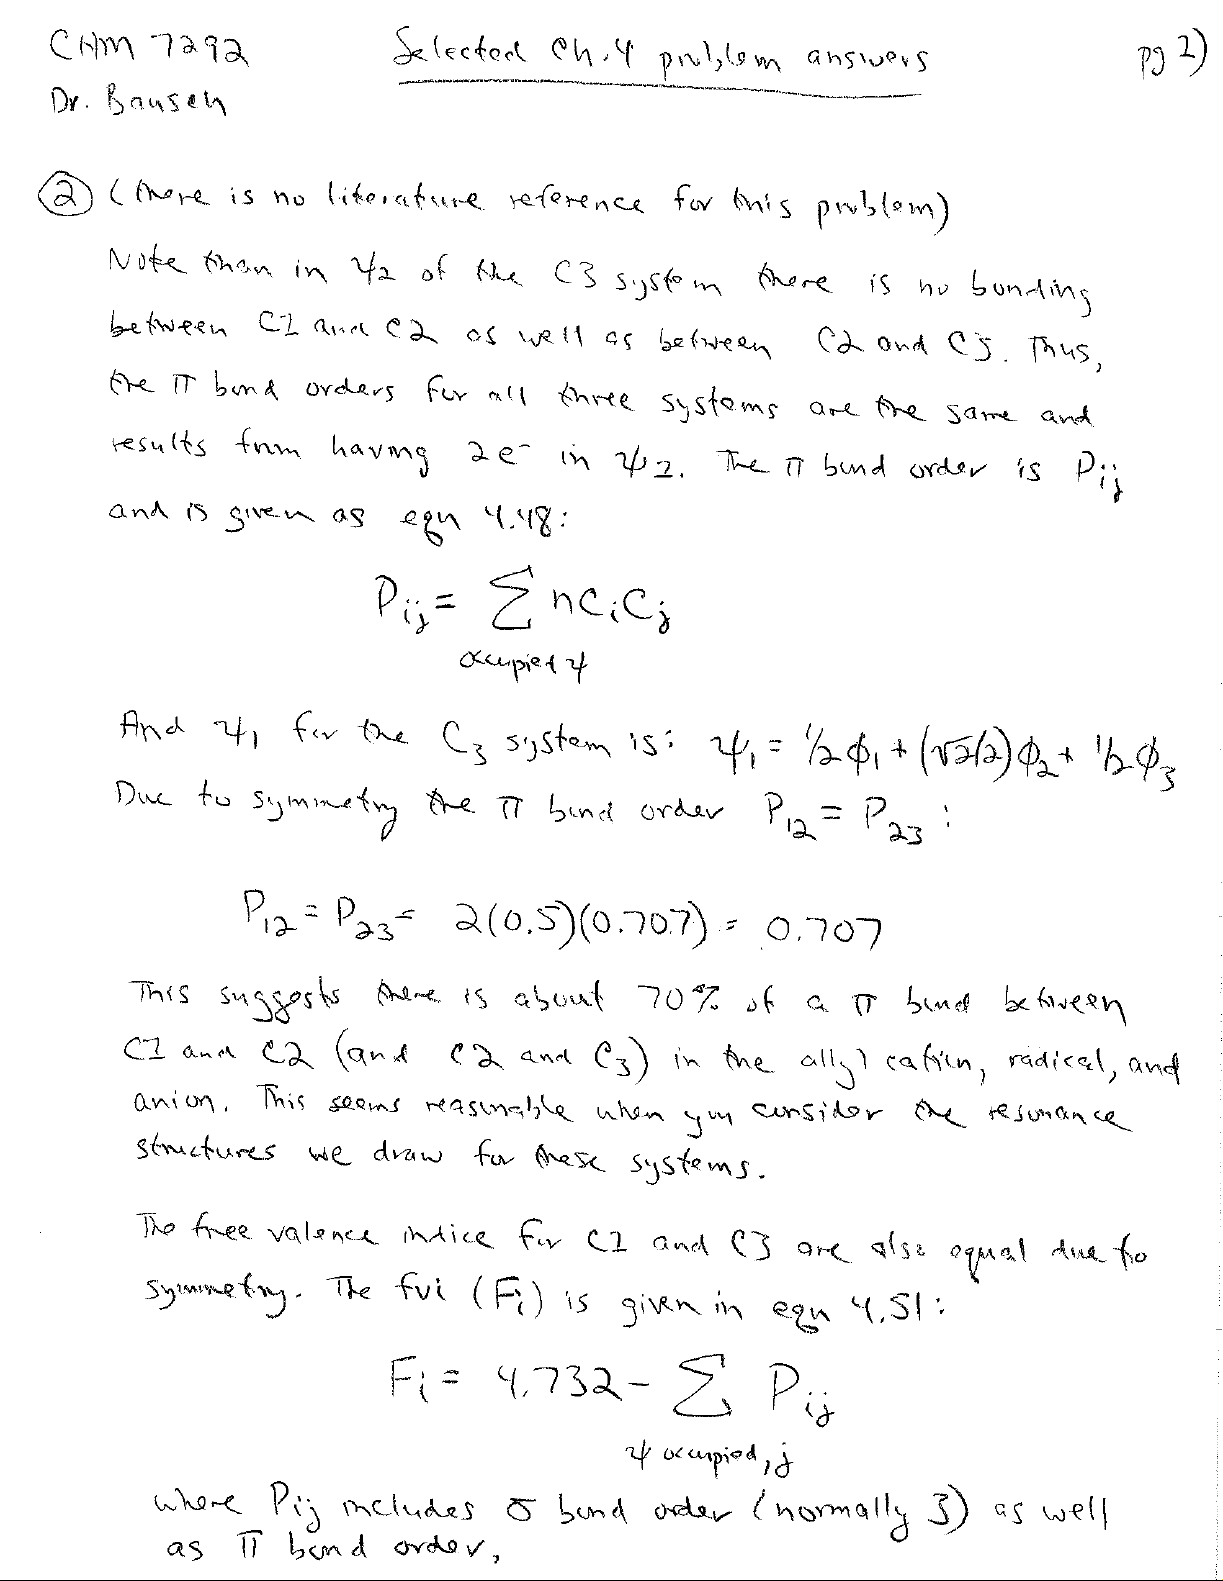 CHM 7292 Selected Ch. 4 problem answers pg 1)
Dr. Bausch
② (there is no literature reference for this problem)
Note than in ψ2 of the C3 system there is no bonding
between C1 and C2 as well as between C2 and C3. Thus,
the π bond orders for all three systems are the same and
results from having 2e⁻ in ψ1. The π bond order is Pij
and is given as eqn 4.48:
Pij = Σ nCiCj
occupied ψ
And ψ1 for the C3 system is: ψ1 = 1/2 ϕ1 + (√2/2) ϕ2 + 1/2 ϕ3
Due to symmetry the π bond order P12 = P23 :
P12 = P23 = 2(0.5)(0.707) = 0.707
This suggests there is about 70% of a π bond between
C1 and C2 (and C2 and C3) in the allyl cation, radical, and
anion. This seems reasonable when you consider the resonance
structures we draw for these systems.
The free valence indice for C1 and C3 are also equal due to
symmetry. The fvi (Fi) is given in eqn 4.51:
Fi = 4.732 - Σ Pij
ψ occupied, j
where Pij includes σ bond order (normally 3) as well
as π bond order,